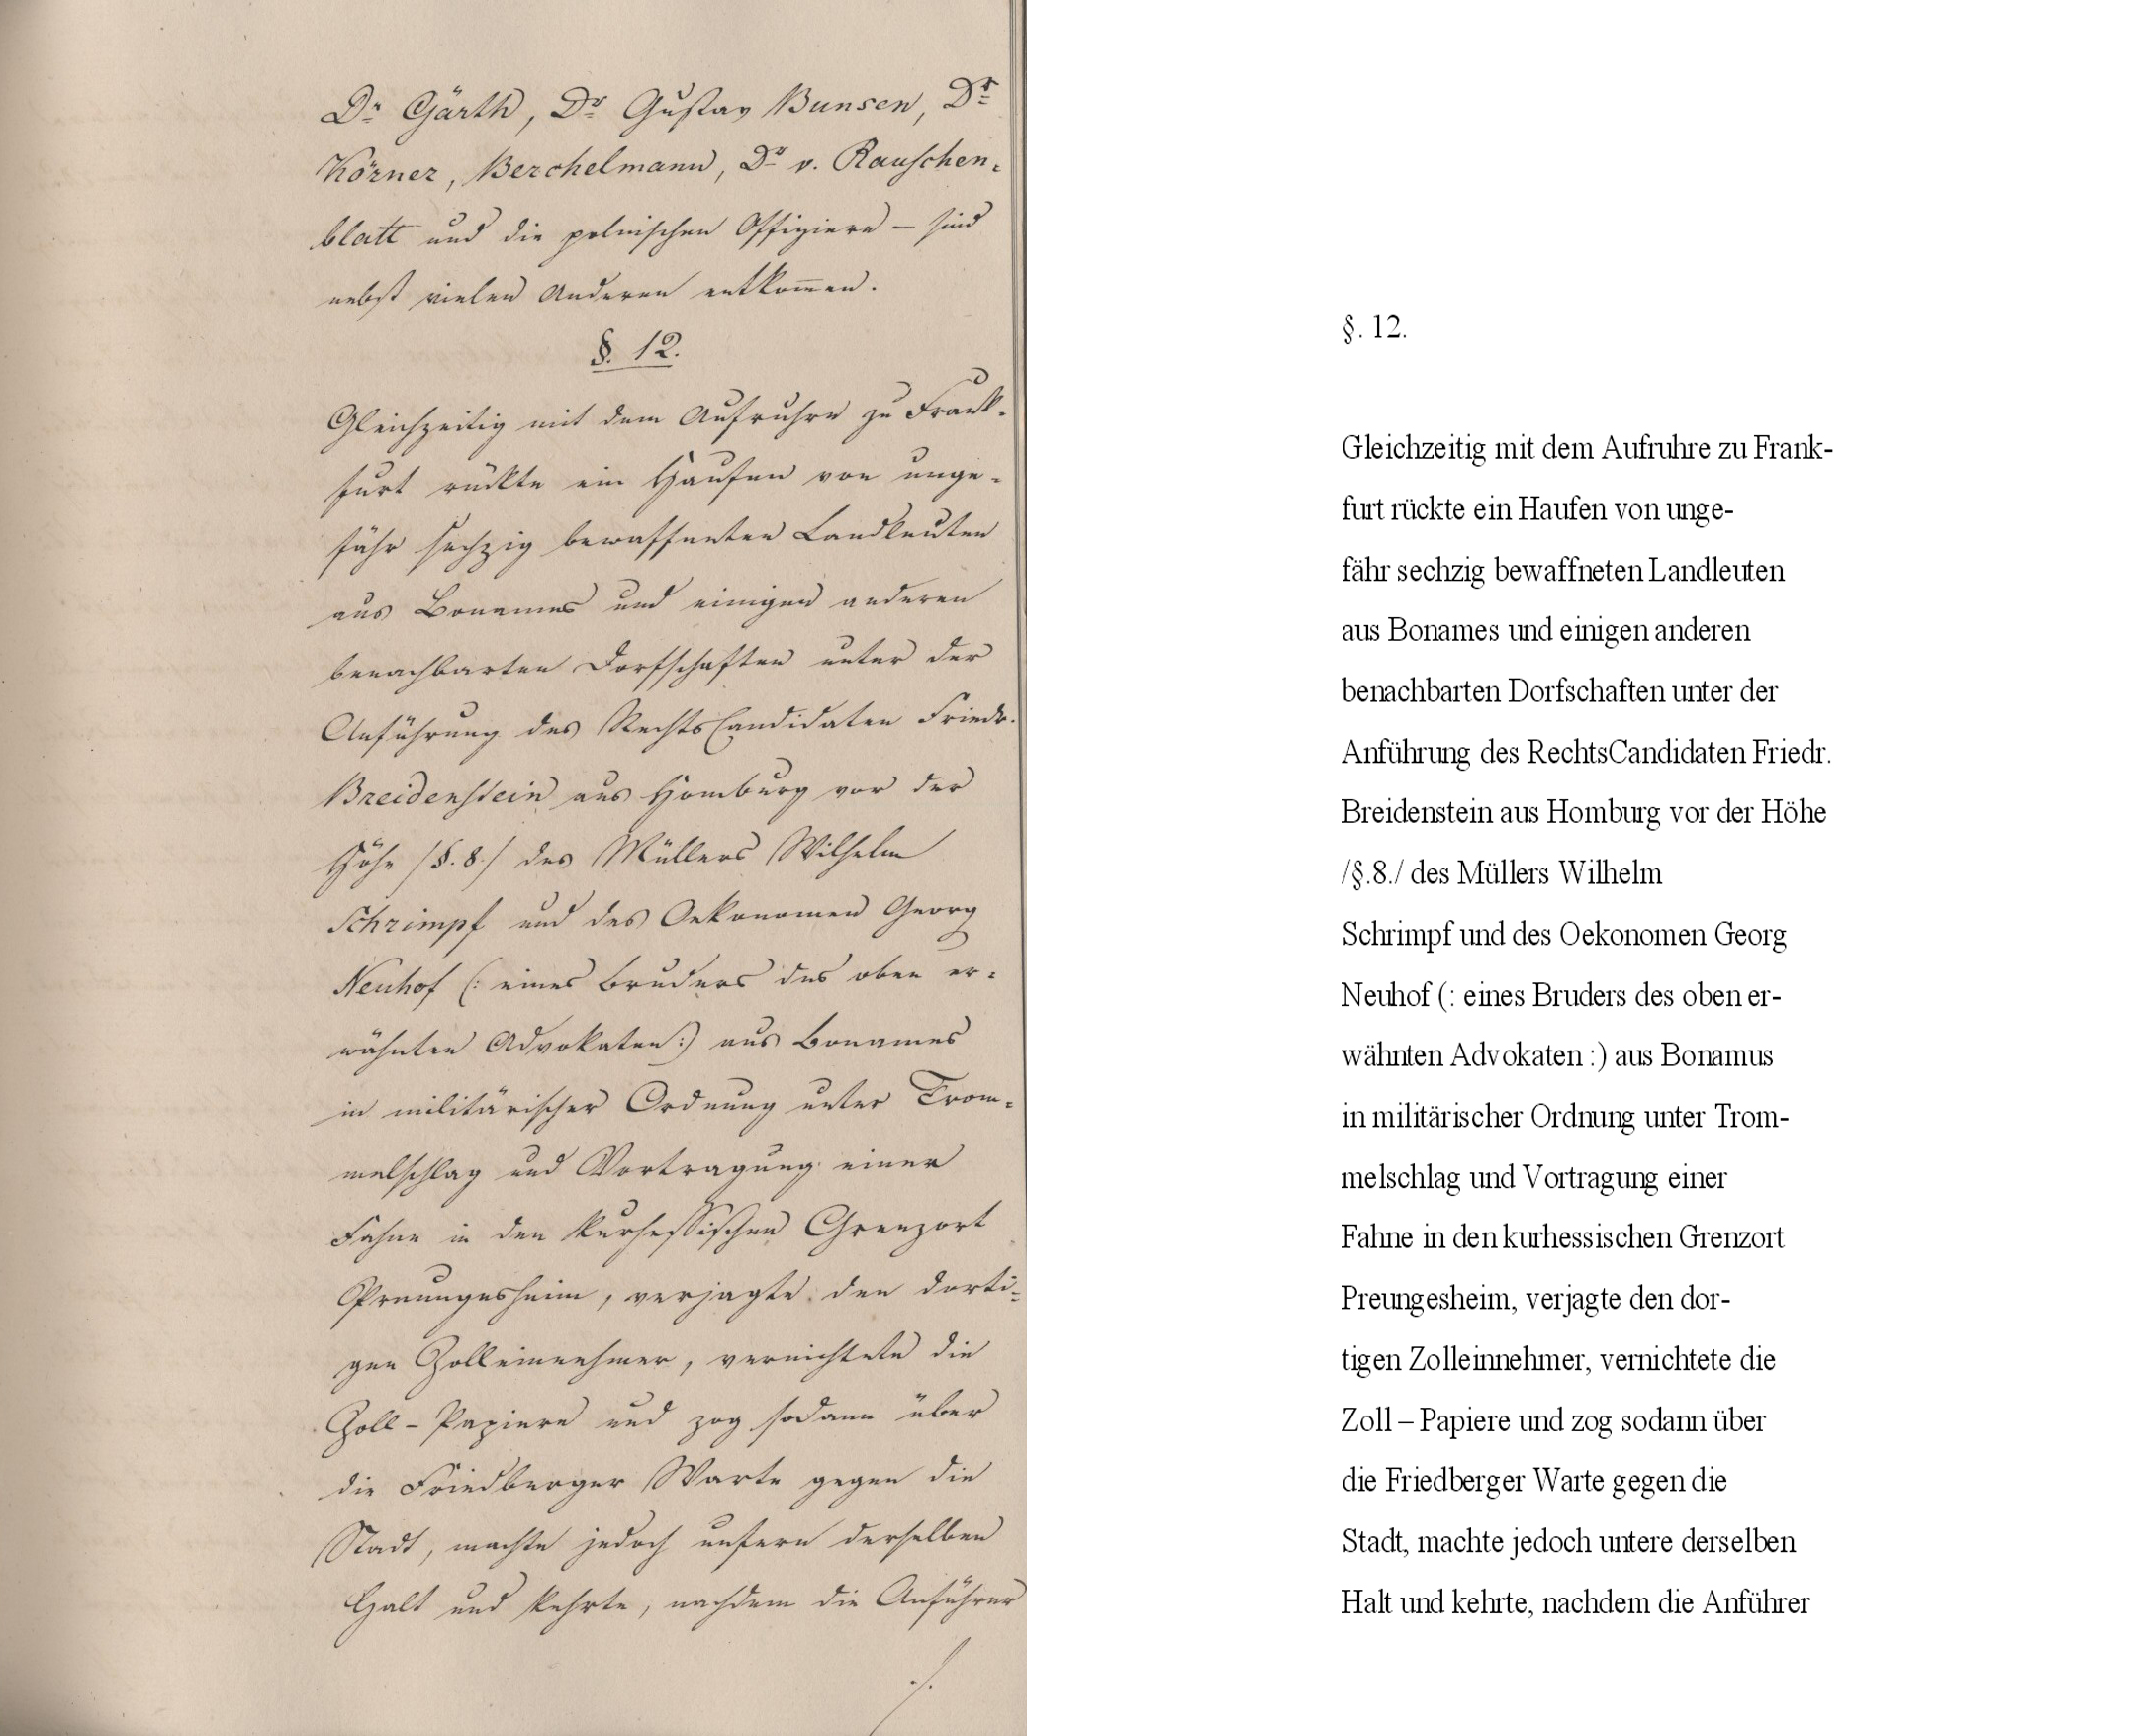 Dr Gärth, Dr Gustav Bunsen, Dr
Körner, Berchelmann, Dr v. Rauschen-
blatt und die polnischen Offiziere – sind
nebst vielen Anderen entkommen.
§. 12.
Gleichzeitig mit dem Aufruhre zu Frank-
furt rückte ein Haufen von unge-
fähr sechzig bewaffneten Landleuten
aus Bonames und einigen anderen
benachbarten Dorfschaften unter der
Anführung des RechtsCandidaten Friedr.
Breidenstein aus Homburg vor der
Höhe /§.8./ des Müllers Wilhelm
Schrimpf und des Oekonomen Georg
Neuhof (: eines Bruders des oben er-
wähnten Advokaten:) aus Bonames
in militärischer Ordnung unter Trom-
melschlag und Vortragung einer
Fahne in den kurhessischen Grenzort
Preungesheim, verjagte den dorti-
gen Zolleinnehmer, vernichtete die
Zoll – Papiere und zog sodann über
die Friedberger Warte gegen die
Stadt, machte jedoch unfern derselben
Halt und kehrte, nachdem die Anführer
./.
§. 12.
Gleichzeitig mit dem Aufruhre zu Frank-
furt rückte ein Haufen von unge-
fähr sechzig bewaffneten Landleuten
aus Bonames und einigen anderen
benachbarten Dorfschaften unter der
Anführung des RechtsCandidaten Friedr.
Breidenstein aus Homburg vor der Höhe
/§.8./ des Müllers Wilhelm
Schrimpf und des Oekonomen Georg
Neuhof (: eines Bruders des oben er-
wähnten Advokaten :) aus Bonamus
in militärischer Ordnung unter Trom-
melschlag und Vortragung einer
Fahne in den kurhessischen Grenzort
Preungesheim, verjagte den dor-
tigen Zolleinnehmer, vernichtete die
Zoll – Papiere und zog sodann über
die Friedberger Warte gegen die
Stadt, machte jedoch untere derselben
Halt und kehrte, nachdem die Anführer